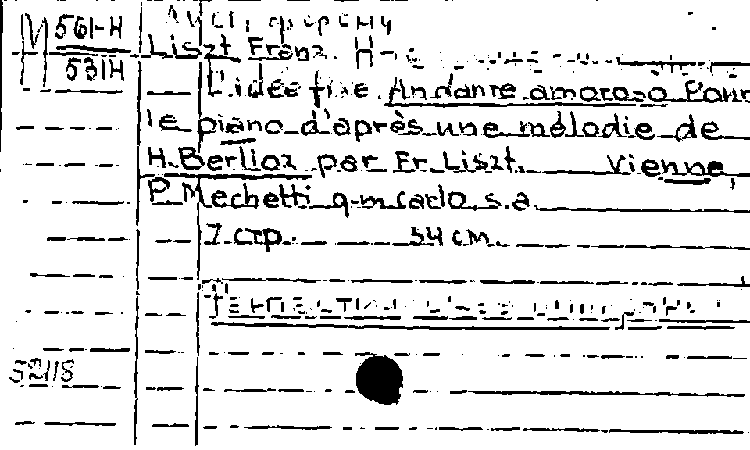 М 561-Н
531Н
Liszt Franz.
L'idée fixe. Andante amoroso Pour
le piano d'après une mélodie de
H. Berlioz par Fr. Liszt. Vienne,
P. Mechetti q-m Carlo, s.a.
7 стр. 34 см.
52118